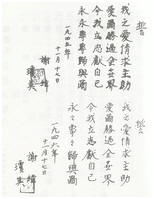 誓
我之愛情求主助
愛爾勝過全世界
今我立志獻自己
永永專專歸與爾
一九四五年
十一月十七日
謝緯
瓊英
誓
我之愛情求主助
愛爾勝過全世界
今我立志獻自己
永永專專歸與爾
一九四六年
十一月十七日
謝緯
瓊英